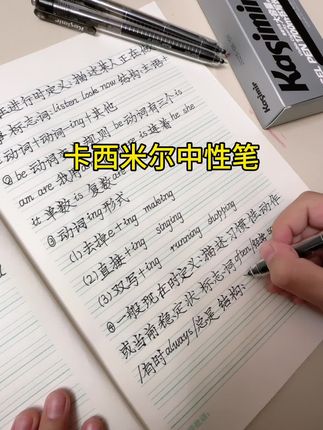 Kasimir
Kasimir
卡西米尔中性笔
在进行时定义:描述某人正在
标志词:listen Look now 结构:主语+
动词+动词-ing+其他
② be动词 规则 be动词有三个is
am are 我用am is 连着he she
it 单数is 复数are
③ 动词ing形式
(1) 去掉e+ing making
(2) 直接+ing singing shopping
(3) 双写+ing running
④ 一般现在时定义:描述习惯性动作
或当前稳定状 标志词often
/有时always/总是 结构: